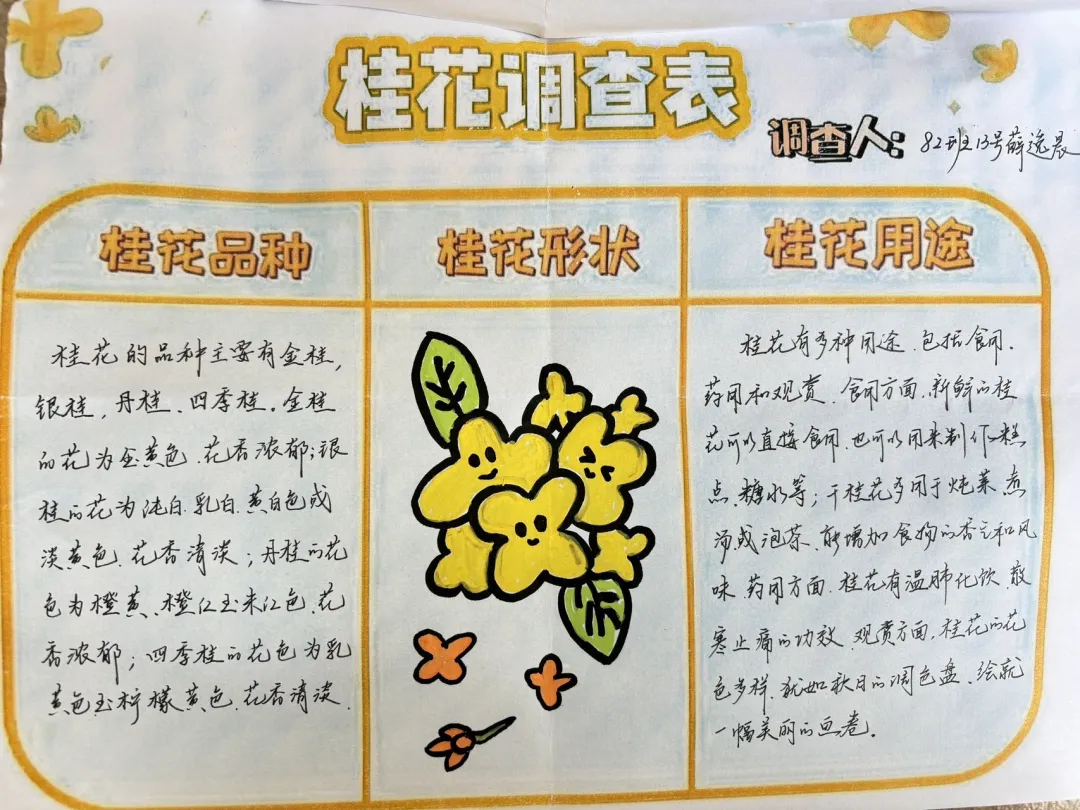 桂花调查表
调查人: 82班13号薛逸晨
桂花品种
桂花的品种主要有金桂,
银桂,丹桂、四季桂。金桂
的花为金黄色、花香浓郁;银
桂的花为纯白、乳白、黄白色或
淡黄色、花香清淡;丹桂的花
色为橙黄、橙红至朱红色、花
香浓郁;四季桂的花色为乳
黄色至柠檬黄色、花香清淡.
桂花形状
桂花用途
桂花有多种用途、包括食用、
药用和观赏、食用方面、新鲜的桂
花可以直接食用、也可以用来制作糕
点、糖水等;干桂花多用于炖菜、煮
汤或泡茶、能增加食物的香气和风
味、药用方面、桂花有温肺化饮、散
寒止痛的功效、观赏方面、桂花的花
色多样、犹如秋日的调色盘、绘就
一幅美丽的画卷。